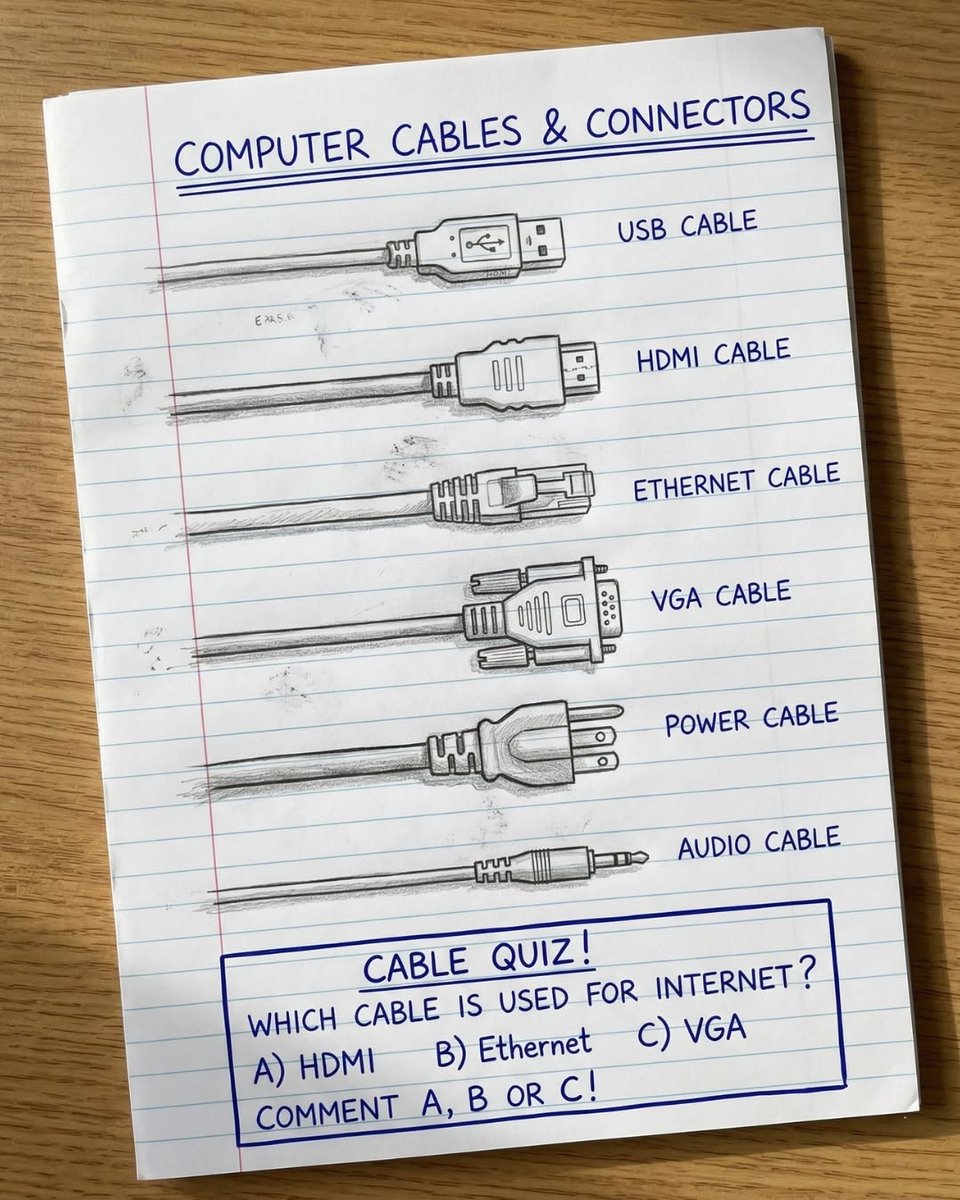 COMPUTER CABLES & CONNECTORS
USB CABLE
HDMI CABLE
ETHERNET CABLE
VGA CABLE
POWER CABLE
AUDIO CABLE
CABLE QUIZ!
WHICH CABLE IS USED FOR INTERNET?
A) HDMI B) Ethernet C) VGA
COMMENT A, B OR C!